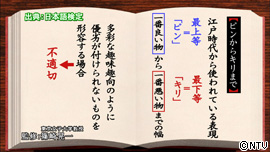 出典：日本語検定
【ピンからキリまで】
江戸時代から使われている表現
最上等
＝
「ピン」
最下等
＝
「キリ」
一番良い物から一番悪い物までの幅
多彩な趣味趣向のように
優劣が付けられないものを
形容する場合
不適切
ⒸNTV